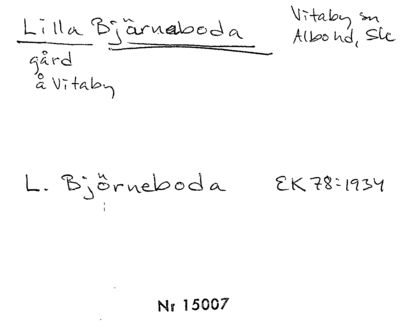 Lilla Björneboda
gård
å Vitaby
Vitaby sn
Albo hd, Skå
L. Björneboda
EK 78:1934
Nr 15007